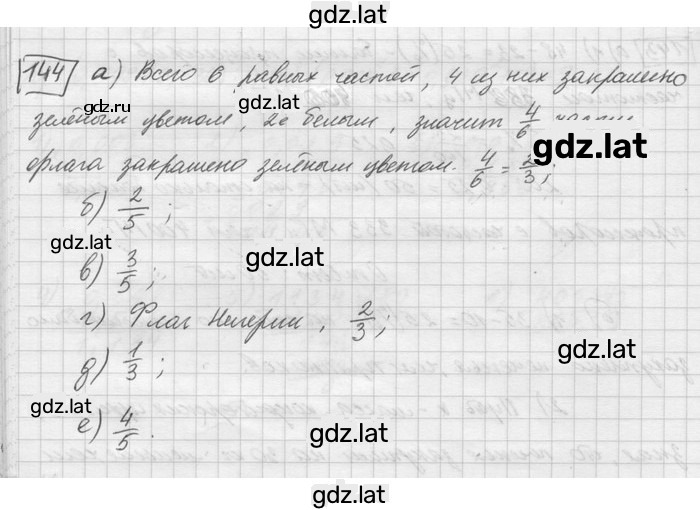 gdz.lat
144 а) Всего 6 равных частей, 4 из них закрашено
gdz.ru
gdz.lat
зелёным цветом, 2е белым, значит 4/6
gdz.lat
флага закрашено зелёным цветом. 4/6 = 2/3;
б) 2/5;
gdz.lat
gdz.lat
в) 3/5;
г) Флаг Нигерии, 2/3;
gdz.lat
д) 1/3;
gdz.lat
е) 4/5.
gdz.lat
gdz.lat